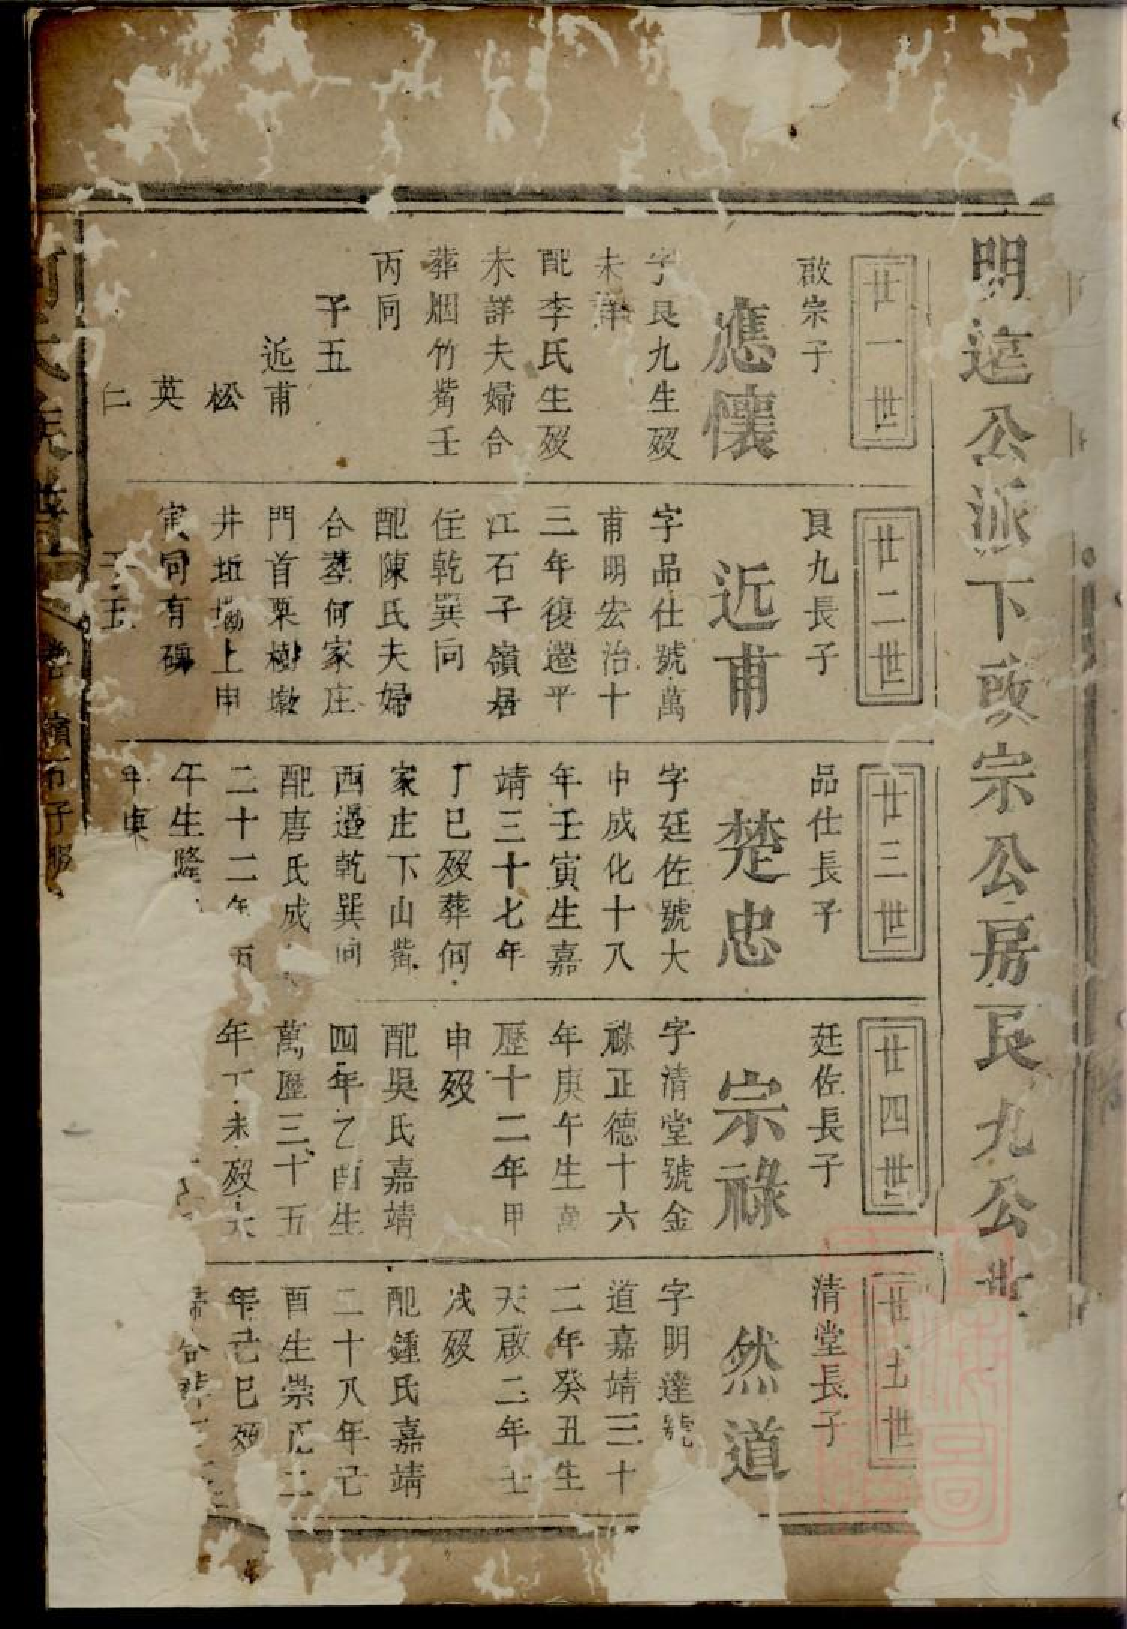 明遠公派下啟宗公房艮九公世
廿一世
啟宗子
應懷
字艮九生歿
未詳
配李氏生歿
未詳夫婦合
葬烟竹觜壬
丙向
子五
近甫
松
英
仁
廿二世
艮九長子
近甫
字品仕號萬
甫明宏治十
三年復遷平
江石子嶺居
住乾巽向
配陳氏夫婦
合葬何家庄
門首栗樹墩
井坵墈上申
寅向有碑
子
廿三世
品仕長子
楚忠
字廷佐號大
中成化十八
年壬寅生嘉
靖三十七年
丁巳歿葬何
家庄下山觜
西邊乾巽向
配唐氏成
二十二年丙
午生隆
年庚
廿四世
廷佐長子
宗祿
字清堂號金
祿正德十六
年庚午生萬
歷十二年甲
申歿
配吳氏嘉靖
四年乙酉生
萬歷三十五
年丁未歿夫
廿五世
清堂長子
然道
字明達號
道嘉靖三十
二年癸丑生
天啟二年壬
戌歿
配鍾氏嘉靖
二十八年己
酉生崇正二
年己巳歿
婦合葬
何氏族譜 卷 嶺石子